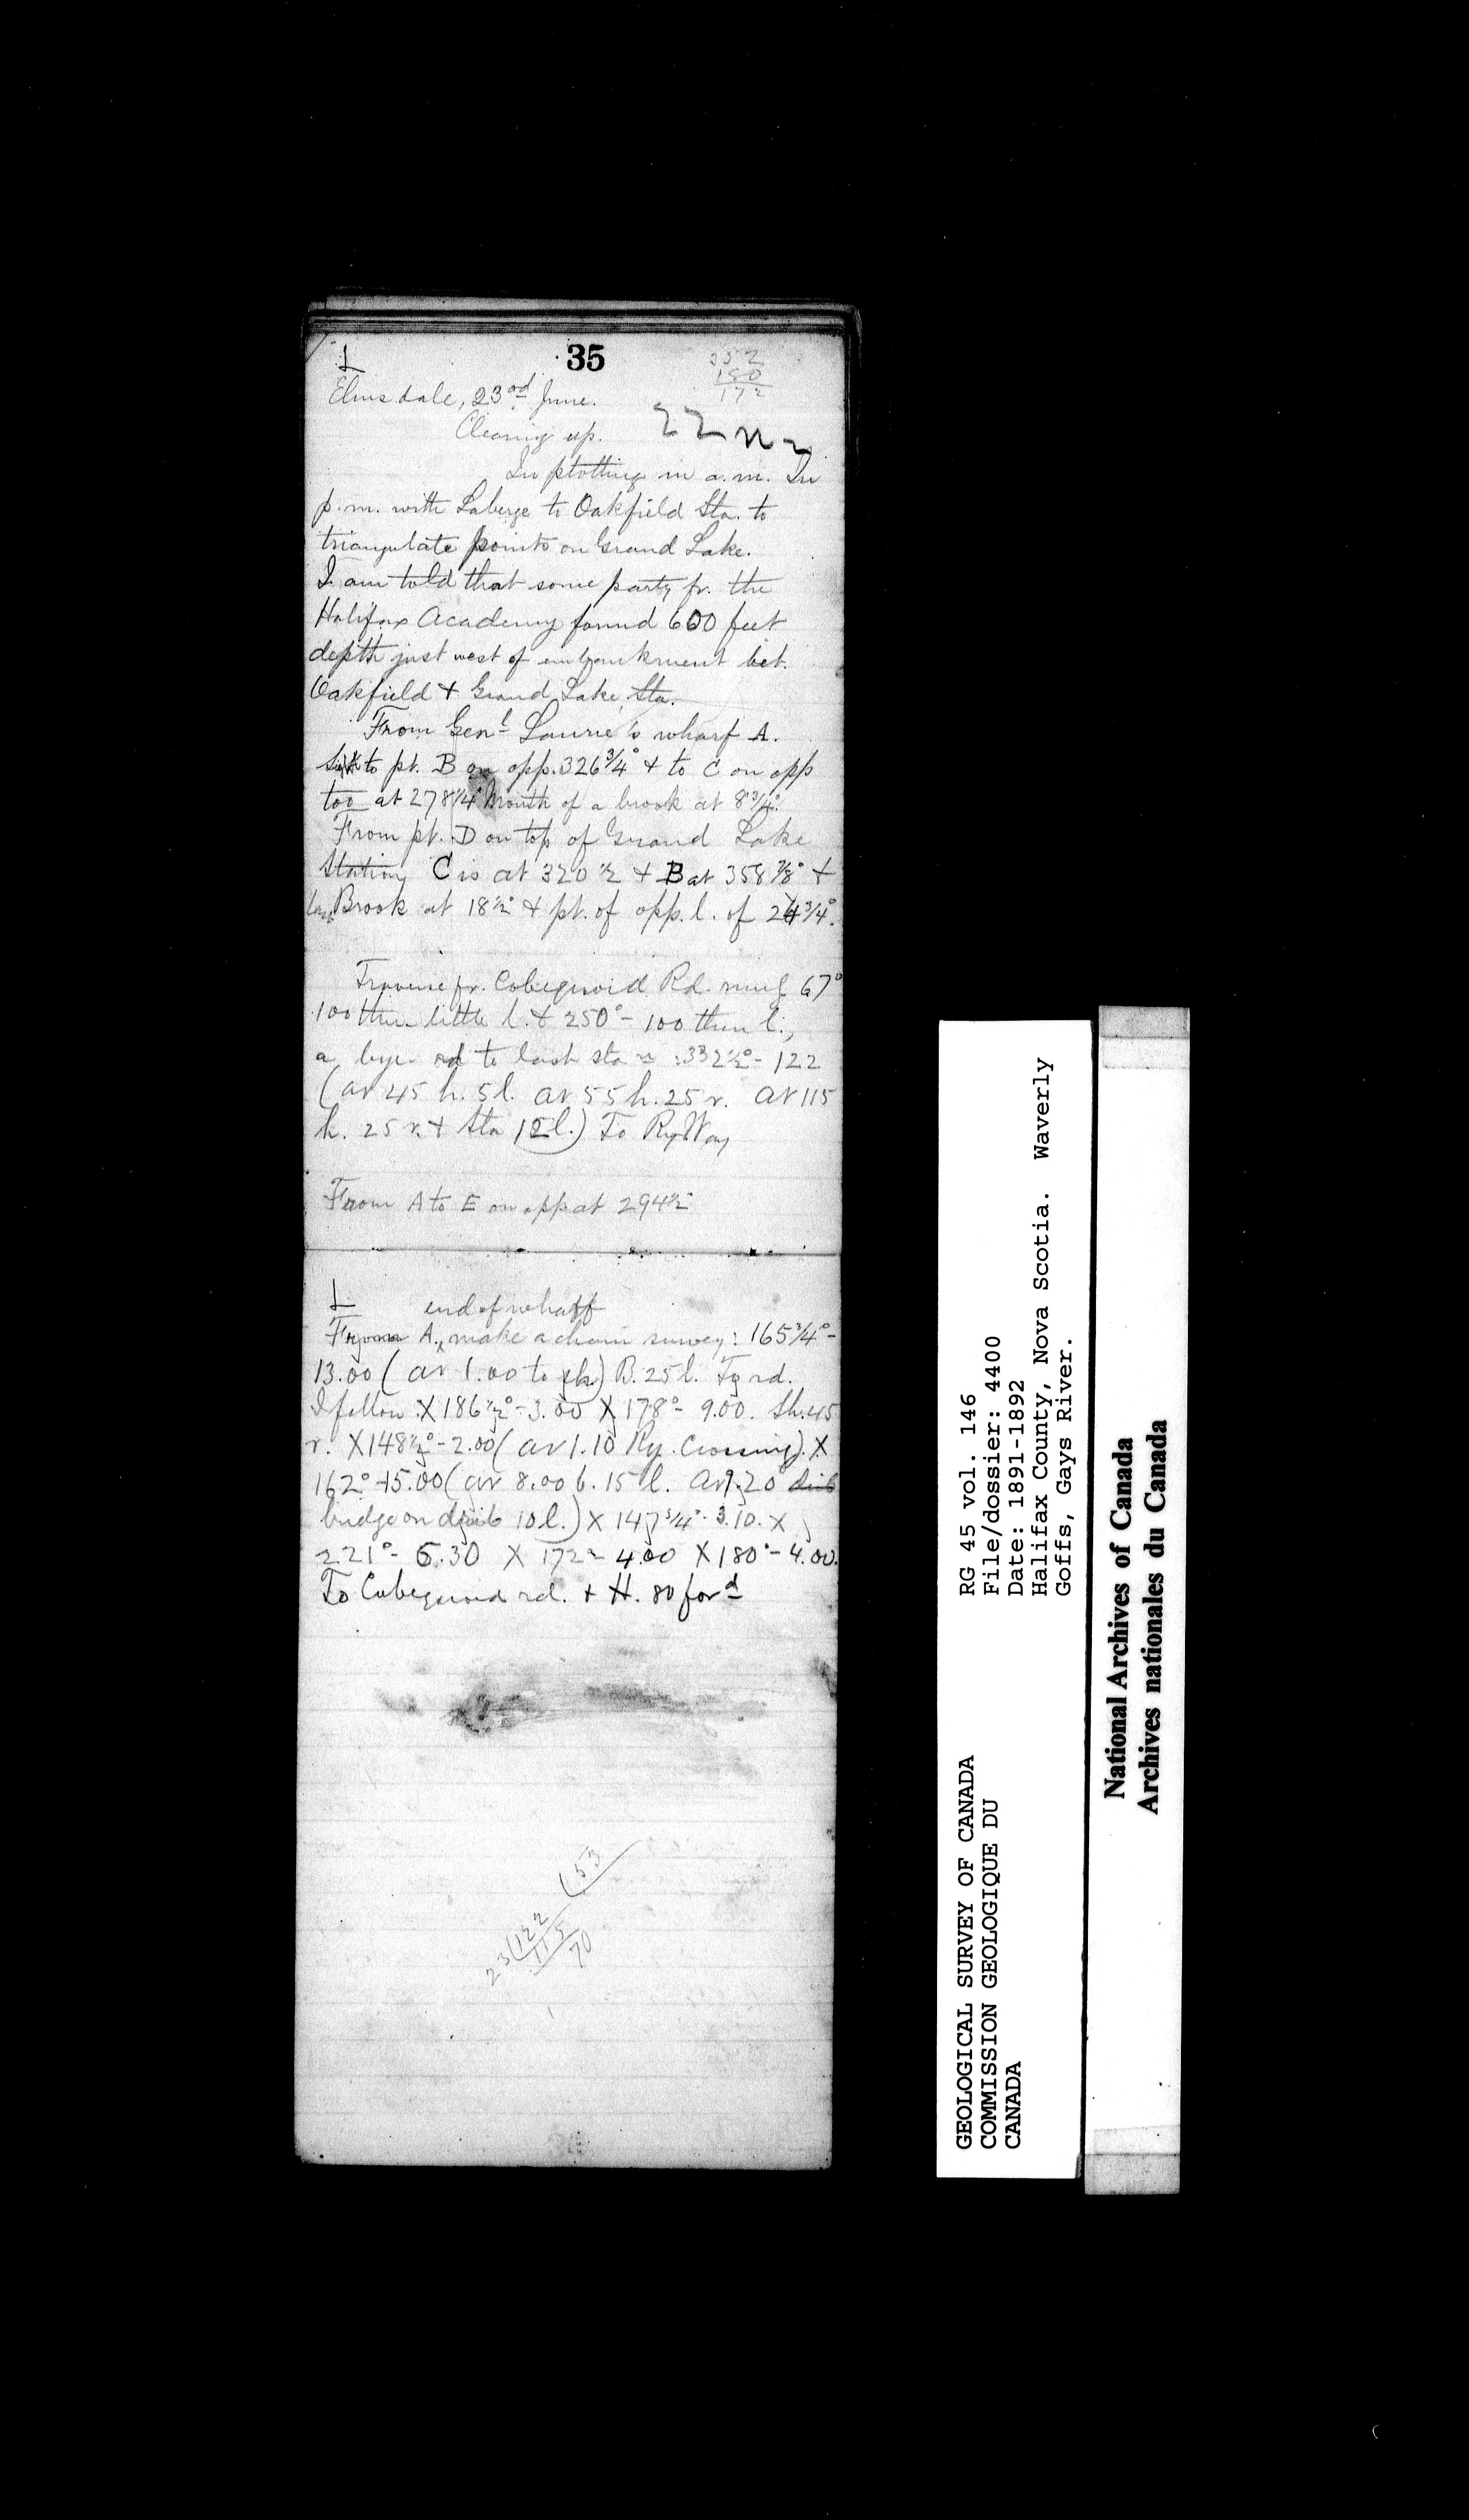 35
L
252
180
172
Elmsdale, 23rd June.
Clearing up.
In plotting in a.m. In
p.m. with Laberge to Oakfield Sta. to
triangulate points on Grand Lake.
I am told that some party fr. the
Halifax Academy found 600 feet
depth just west of embankment bet.
Oakfield + Grand Lake, Sta.
From Genl Laurie's wharf A.
to pt. B on opp. 326 3/4° + to C on opp
too at 278 1/4° Mouth of a brook at 8 3/4°
From pt. D on top of Grand Lake
Station C is at 320 1/2 + B at 358 7/8° +
Brook at 18 1/2° + pt. of opp. l. of 24 3/4°.
Traverse fr. Cobequid Rd. 67°
100 then little l. + 250° - 100 then l.,
a bye rd to last sta 332 1/2° - 122
(at 45 h. 5 l. at 55 h. 25 r. at 115
h. 25 r. + Sta 12 l.) To Ry Way
From A to E on opp at 294 1/2°
L
end of wharf
From A, make a chain survey: 165 3/4° -
13.00 (at 1.00 to sh) B. 25 l. rd.
I follow X 186 1/2° - 3.00 X 178° - 9.00. Sh. 45
r. X 148 1/2° - 2.00 (at 1.10 Ry. Crossing). X
162° - 15.00 (at 8.00 b. 15 l. At 9.20
bridge on 10 l.) X 147 3/4° - 3.10. X
221° - 6.30 X 172° - 4.00 X 180° - 4.00.
To Cobequid rd. + H. 80 ford
23(122(53
115
70
GEOLOGICAL SURVEY OF CANADA
COMMISSION GEOLOGIQUE DU
CANADA
RG 45 vol. 146
File/dossier: 4400
Date: 1891-1892
Halifax County, Nova Scotia. Waverly
Goffs, Gays River.
National Archives of Canada
Archives nationales du Canada